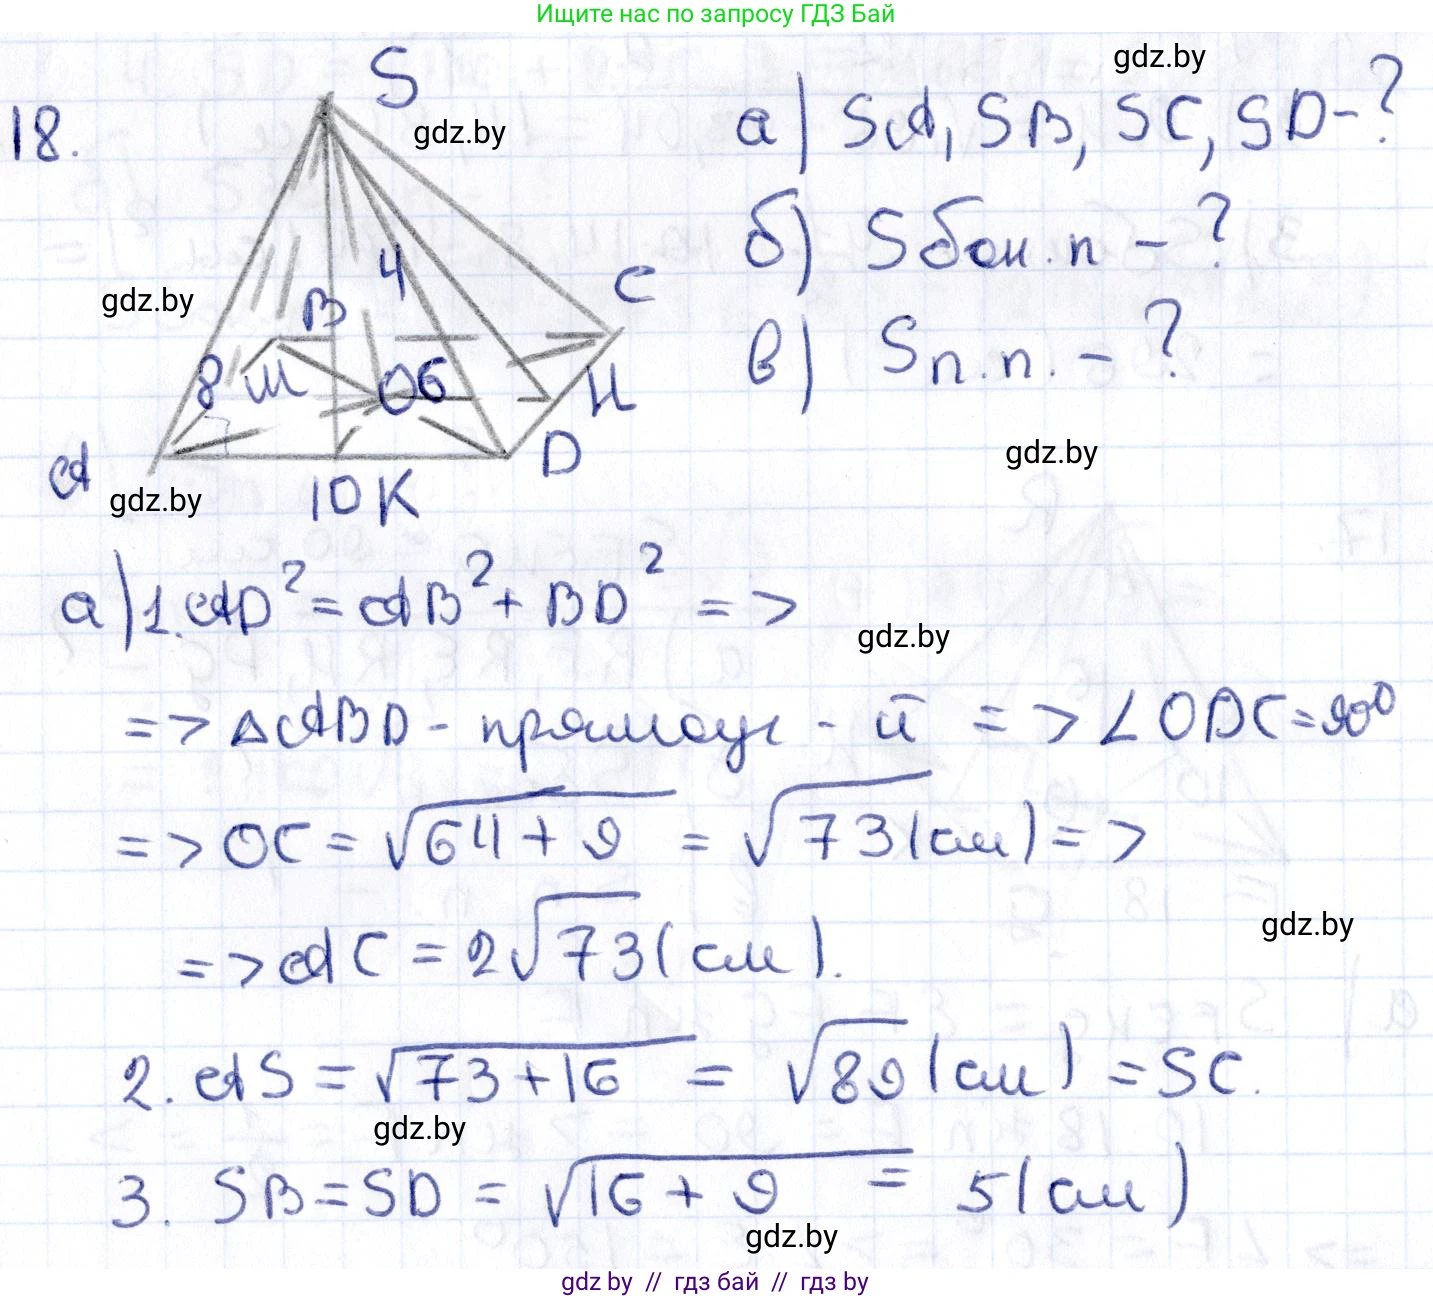 Ищите нас по запросу ГДЗ Бай
18.
S
gdz.by
gdz.by
а) SA, SB, SC, SD - ?
б) Sбок.п - ?
gdz.by
4
B
C
в) Sп.п. - ?
8 M O 6 H
A
D
gdz.by
10 K
gdz.by
а) 1. AD² = AB² + BD² =>
gdz.by
=> △ABD - прямоуг - й => ∠ODC = 90⁰
=> OC = √64 + 9 = √73 (см) =>
=> AC = 2√73 (см).
gdz.by
2. AS = √73 + 16 = √89 (см) = SC.
gdz.by
3. SB = SD = √16 + 9 = 5 (см)
gdz.by
gdz by // гдз бай // гдз by